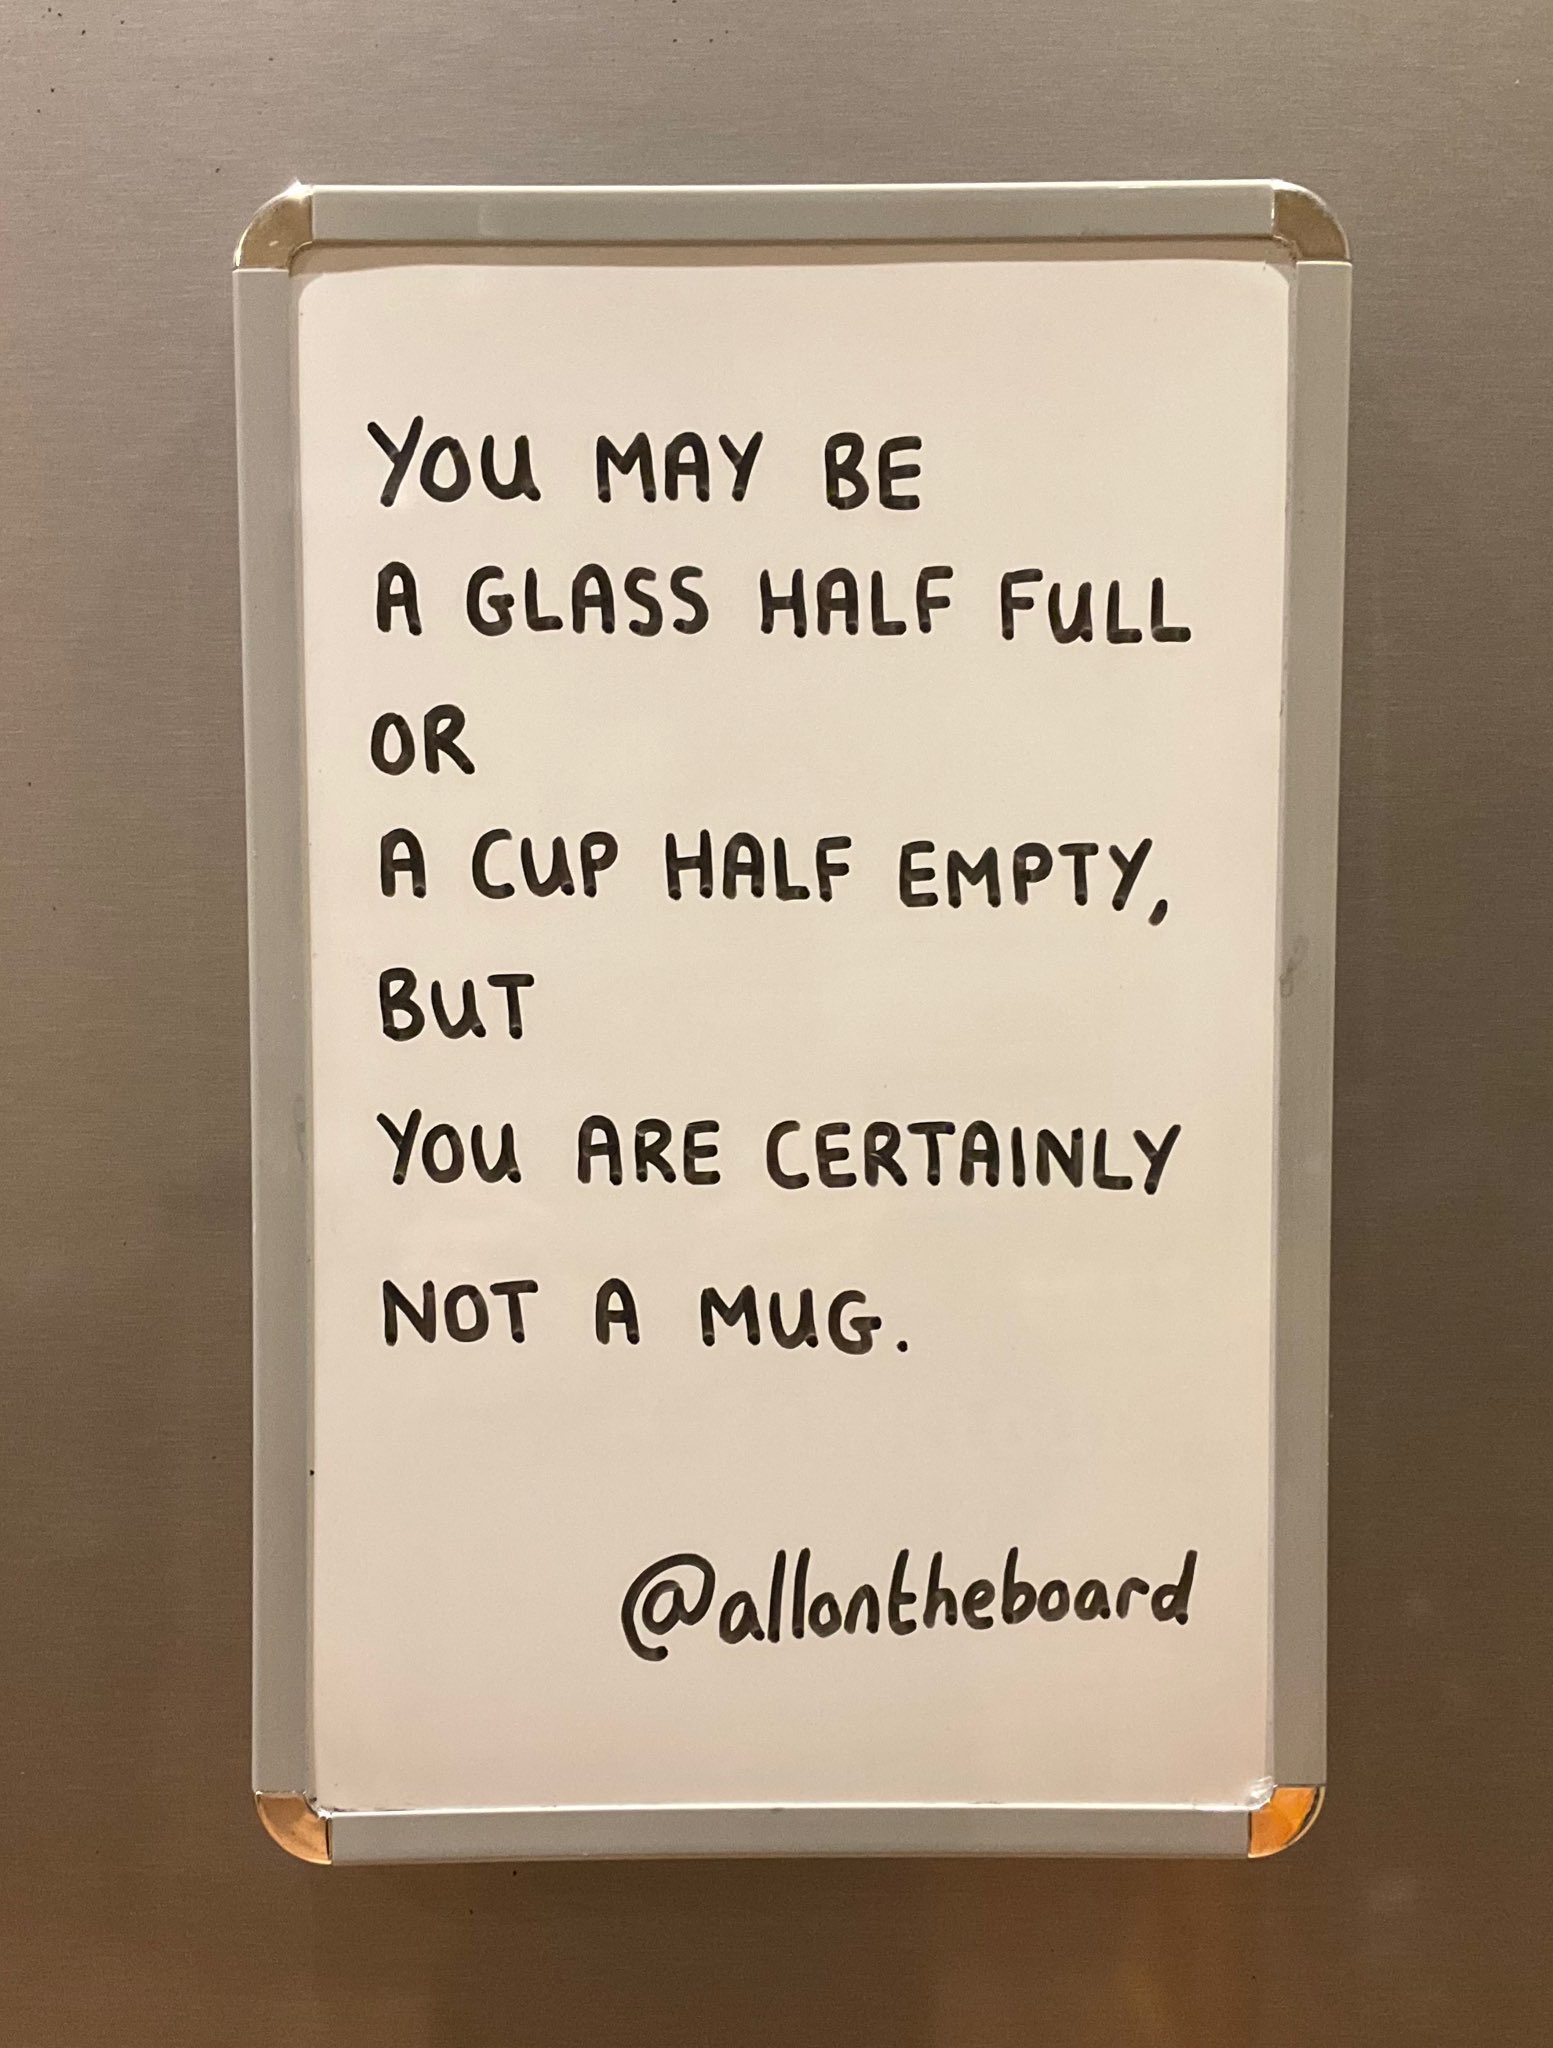 YOU MAY BE
A GLASS HALF FULL
OR
A CUP HALF EMPTY,
BUT
YOU ARE CERTAINLY
NOT A MUG.
@allontheboard